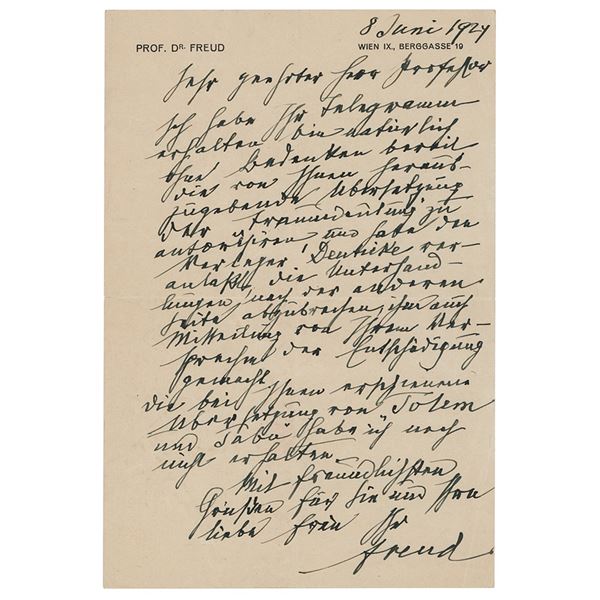 8 Juni 1924
PROF. DR. FREUD
WIEN IX., BERGGASSE 19
Sehr geehrter Herr Professor
Ich habe Ihr Telegramm
erhalten bin natürlich
ohne Bedenken bereit
die von Ihnen heraus-
zugebende Übersetzung
der Traumdeutung zu
autorisiren und habe den
Verleger Deuticke ver-
anlaßt, die Unterhand-
lungen nach der anderen
Seite abzubrechen, ihm auch
Mitteilung von Ihrem Ver-
sprechen der Entschädigung
gemacht
Die bei Ihnen erschienene
Übersetzung von Totem
und Tabu habe ich noch
nicht erhalten.
Mit freundlichsten
Grüßen für Sie und Ihre
liebe Frau Ihr
Freud